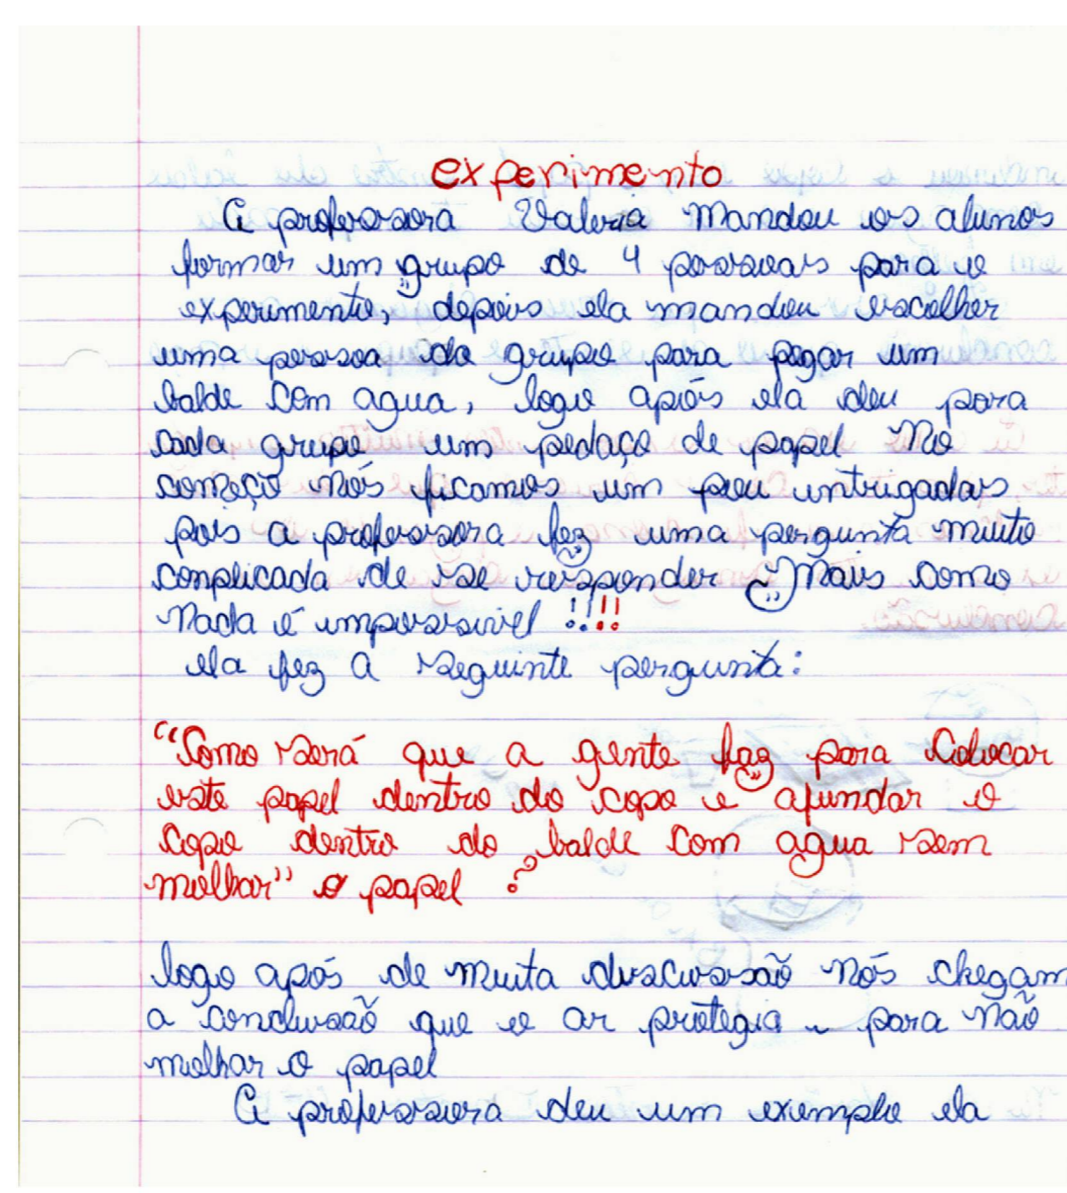 experimento
A professora Valeria Mandou os alunos
formar um grupo de 4 pessoas para o
experimento, depois ela mandou escolher
uma pessoa do grupo para pegar um
balde com agua, logo após ela deu para
cada grupo um pedaço de papel No
começo nós ficamos um pou intrigadas
pois a professora fez uma pergunta muito
conplicada de se responder ~ Mais como
nada é impossivel !!!!
ela fez a seguinte pergunta:
"Como será que a gente faz para colocar
este papel dentro do copo e afundar o
copo dentro do balde com agua sem
molhar" o papel ?
logo após de muita discussão nós chegam
a conclusão que o ar protegia ~ para não
molhar o papel
A professora deu um exemplo ela